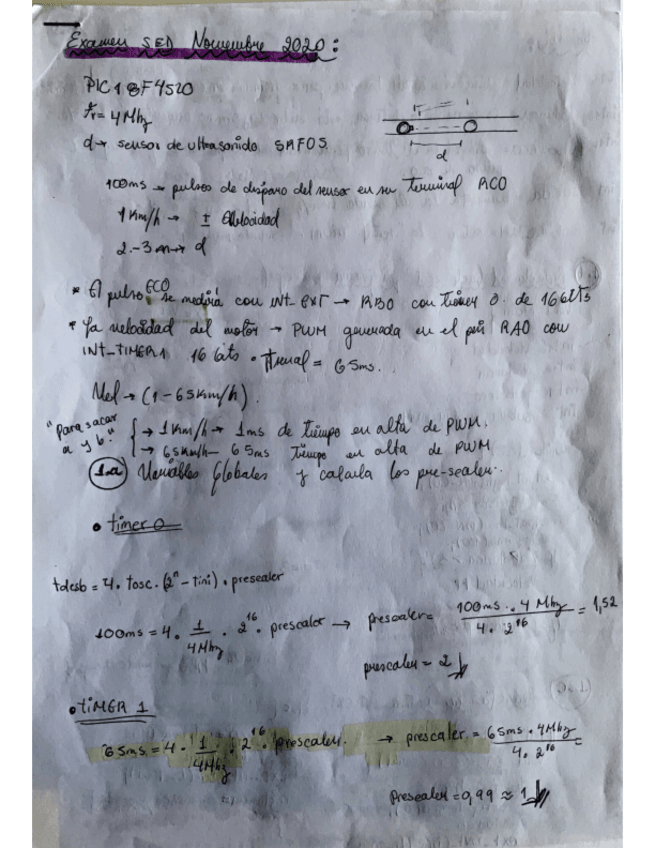 Examen SED Noviembre 2020:
PIC18F4520
Fr= 4Mhz
d→ sensor de ultrasonido SRF05.
d
100ms → pulsos de disparo del sensor en su terminal RC0
1 Km/h → ± velocidad
2.-3 m → d
* El pulso ECO se medirá con INT-EXT → RB0 con timer 0. de 16bits
* La velocidad del motor → PWM generada en el pin RA0 con
INT-TIMER1 16 bits • = 65ms.
Vel → (1-65Km/h).
"Para sacar
a y b"
→ 1Km/h → 1ms de tiempo en alta de PWM.
→ 65Km/h - 65ms tiempo en alta de PWM
1.a Variables Globales y calcula los pre-scaler.
• timer 0
tdesb = 4. Tosc. (2^n - tini) . prescaler
100ms = 4. 1/4Mhz . 2^16 . prescaler → prescaler = 100ms . 4Mhz / 4. 2^16 = 1,52
prescaler = 2
• TIMER 1
65ms = 4 . 1/4Mhz . 2^16 . prescaler. → prescaler = 65ms . 4Mhz / 4. 2^16 =
Prescaler = 0,99 ≈ 1